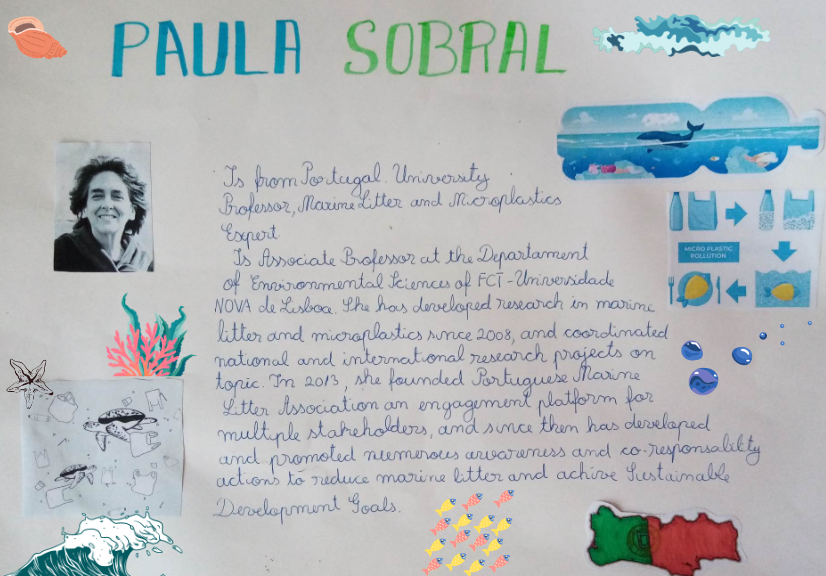 PAULA SOBRAL
Is from Portugal. University
Professor, Marine Litter and Microplastics
Expert
Is Associate Professor at the Departament
of Environmental Sciences of FCT-Universidade
NOVA de Lisboa. She has developed research in marine
litter and microplastics since 2008, and coordinated
national and international research projects on
topic. In 2013, she founded Portuguese Marine
Litter Association an engagement platform for
multiple stakeholders, and since then has developed
and promoted numerous awareness and co-responsability
actions to reduce marine litter and achive Sustainable
Development Goals.
MICRO PLASTIC
POLLUTION